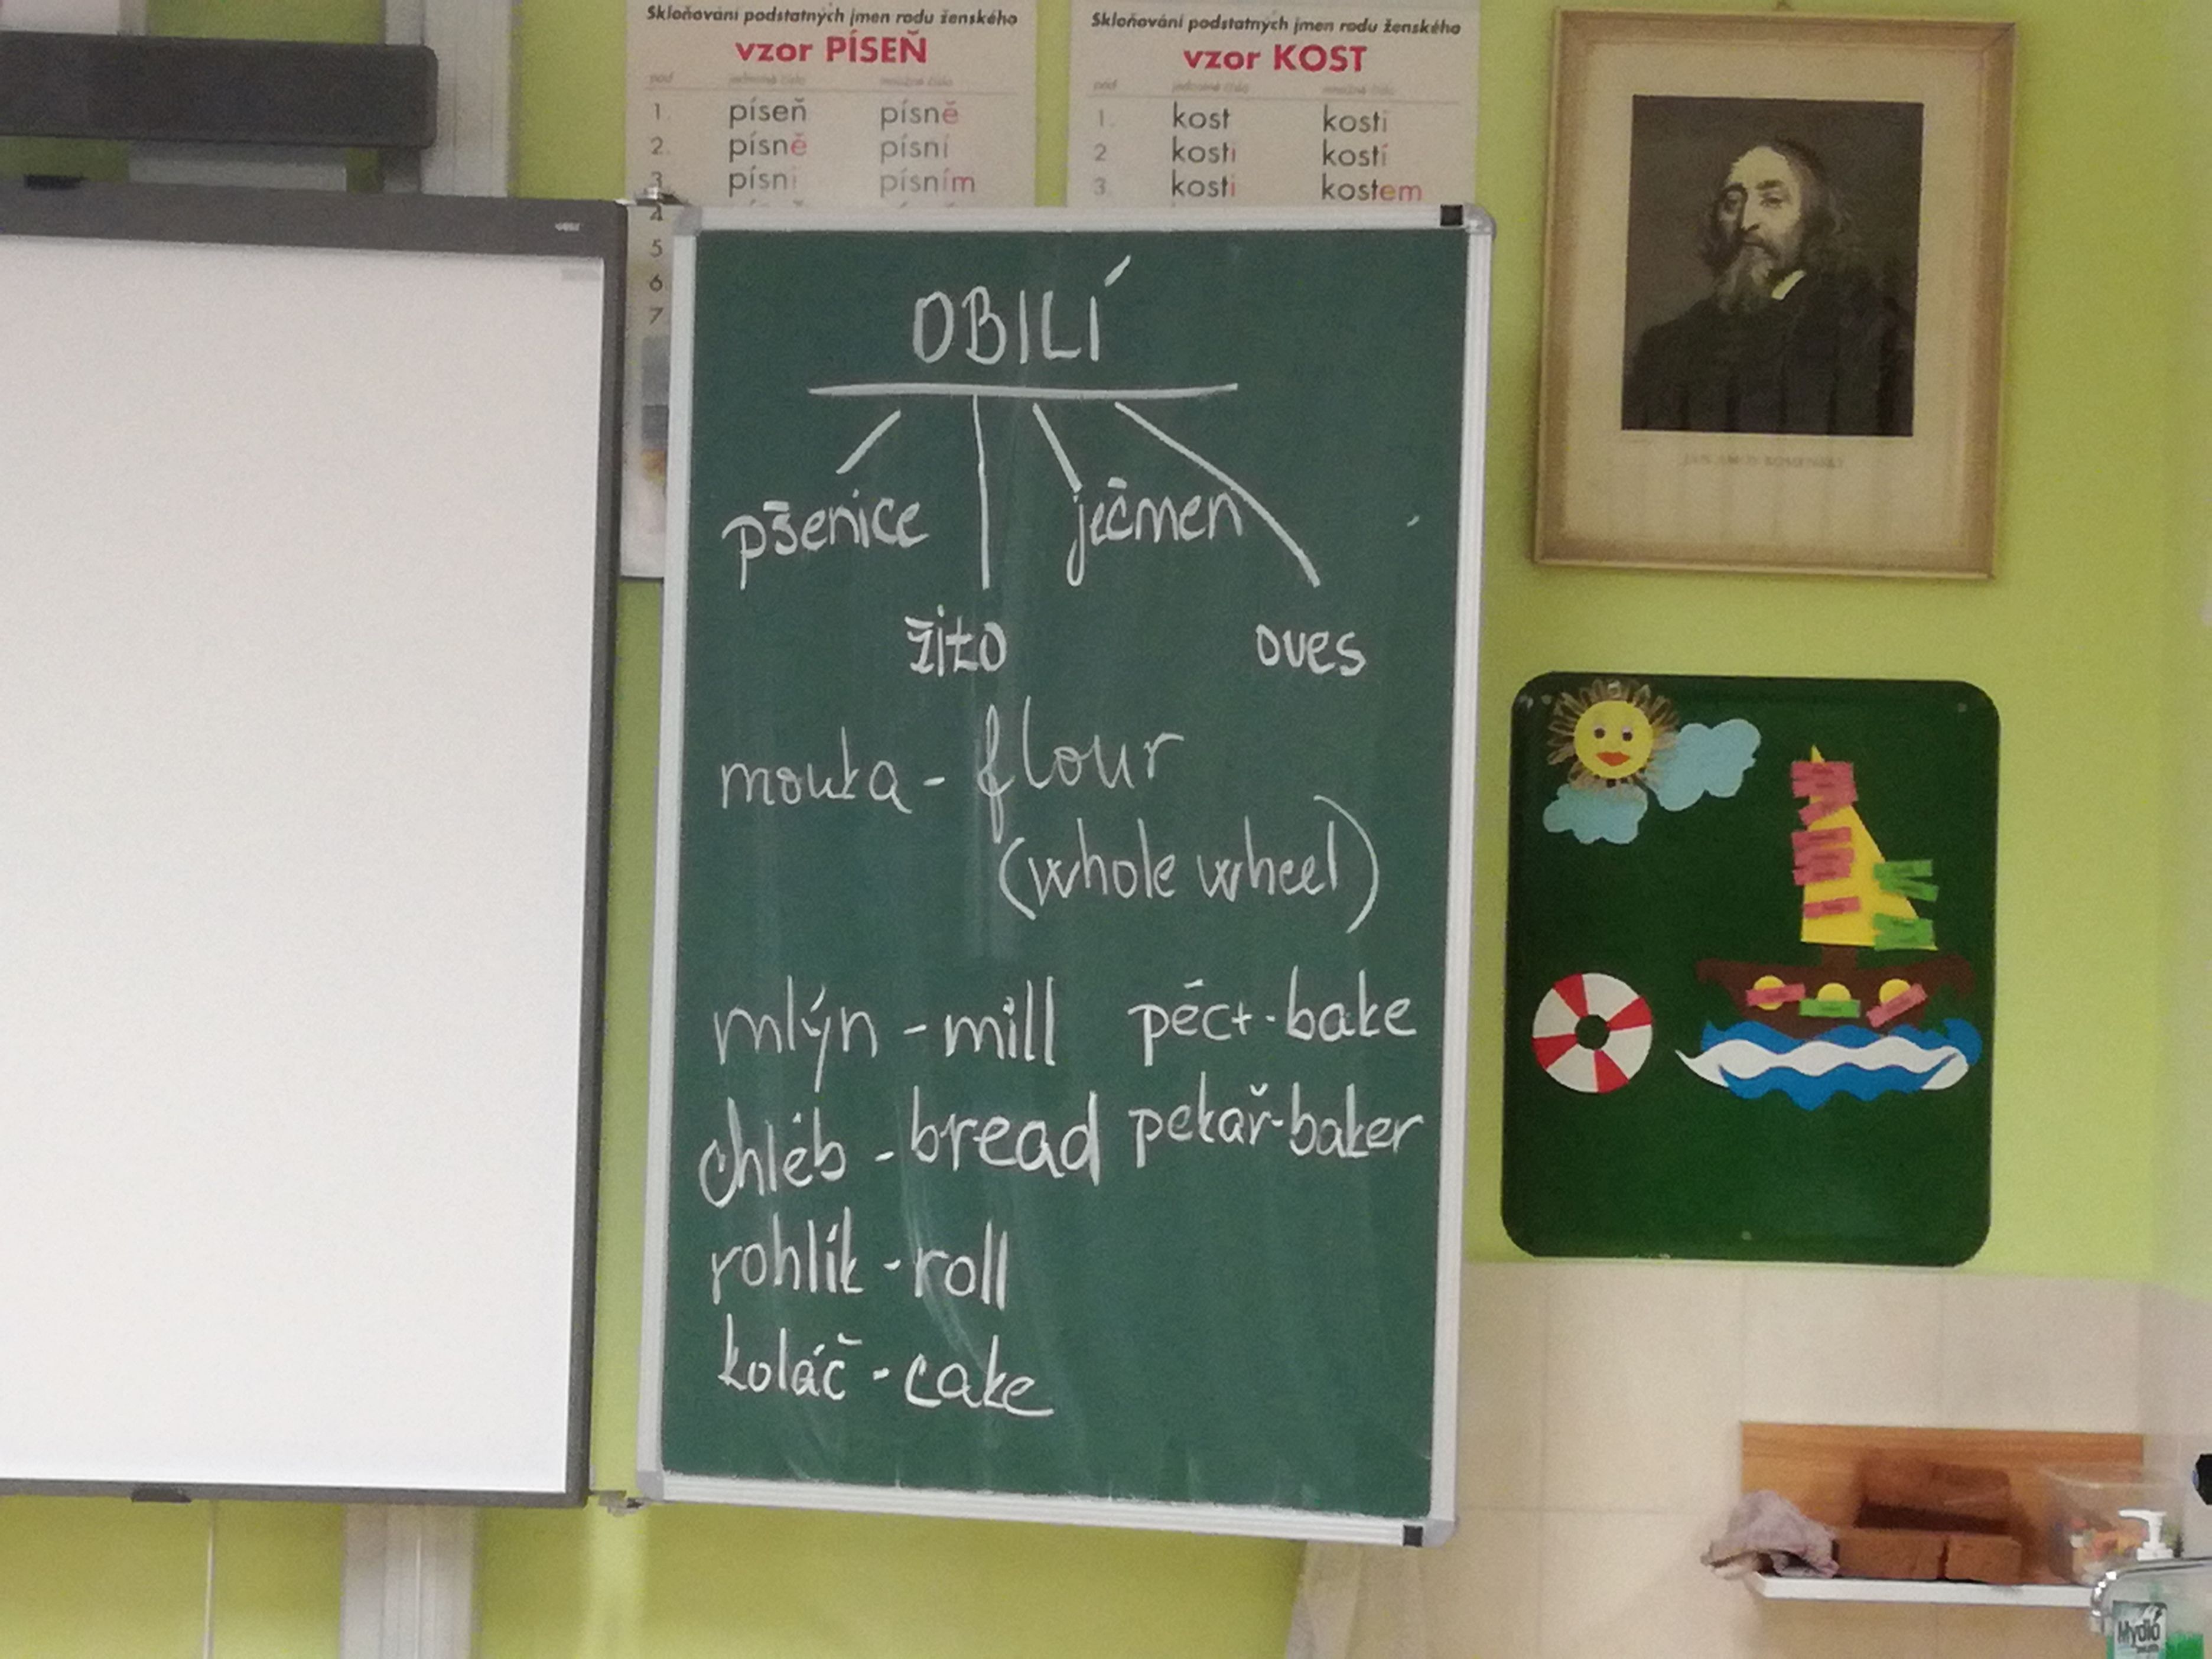 Skloňování podstatných jmen rodu ženského
vzor PÍSEŇ
pád jednotné číslo množné číslo
1. píseň písně
2. písně písní
3. písni písním
4
5
6
7
Skloňování podstatných jmen rodu ženského
vzor KOST
pád jednotné číslo množné číslo
1. kost kosti
2 kosti kostí
3. kosti kostem
OBILÍ
pšenice ječmen
žito oves
mouka - flour
(whole wheel)
mlýn - mill péct - bake
chléb - bread pekař - baker
rohlík - roll
koláč - cake
JAN AMOS KOMENSKÝ
Mýdlo